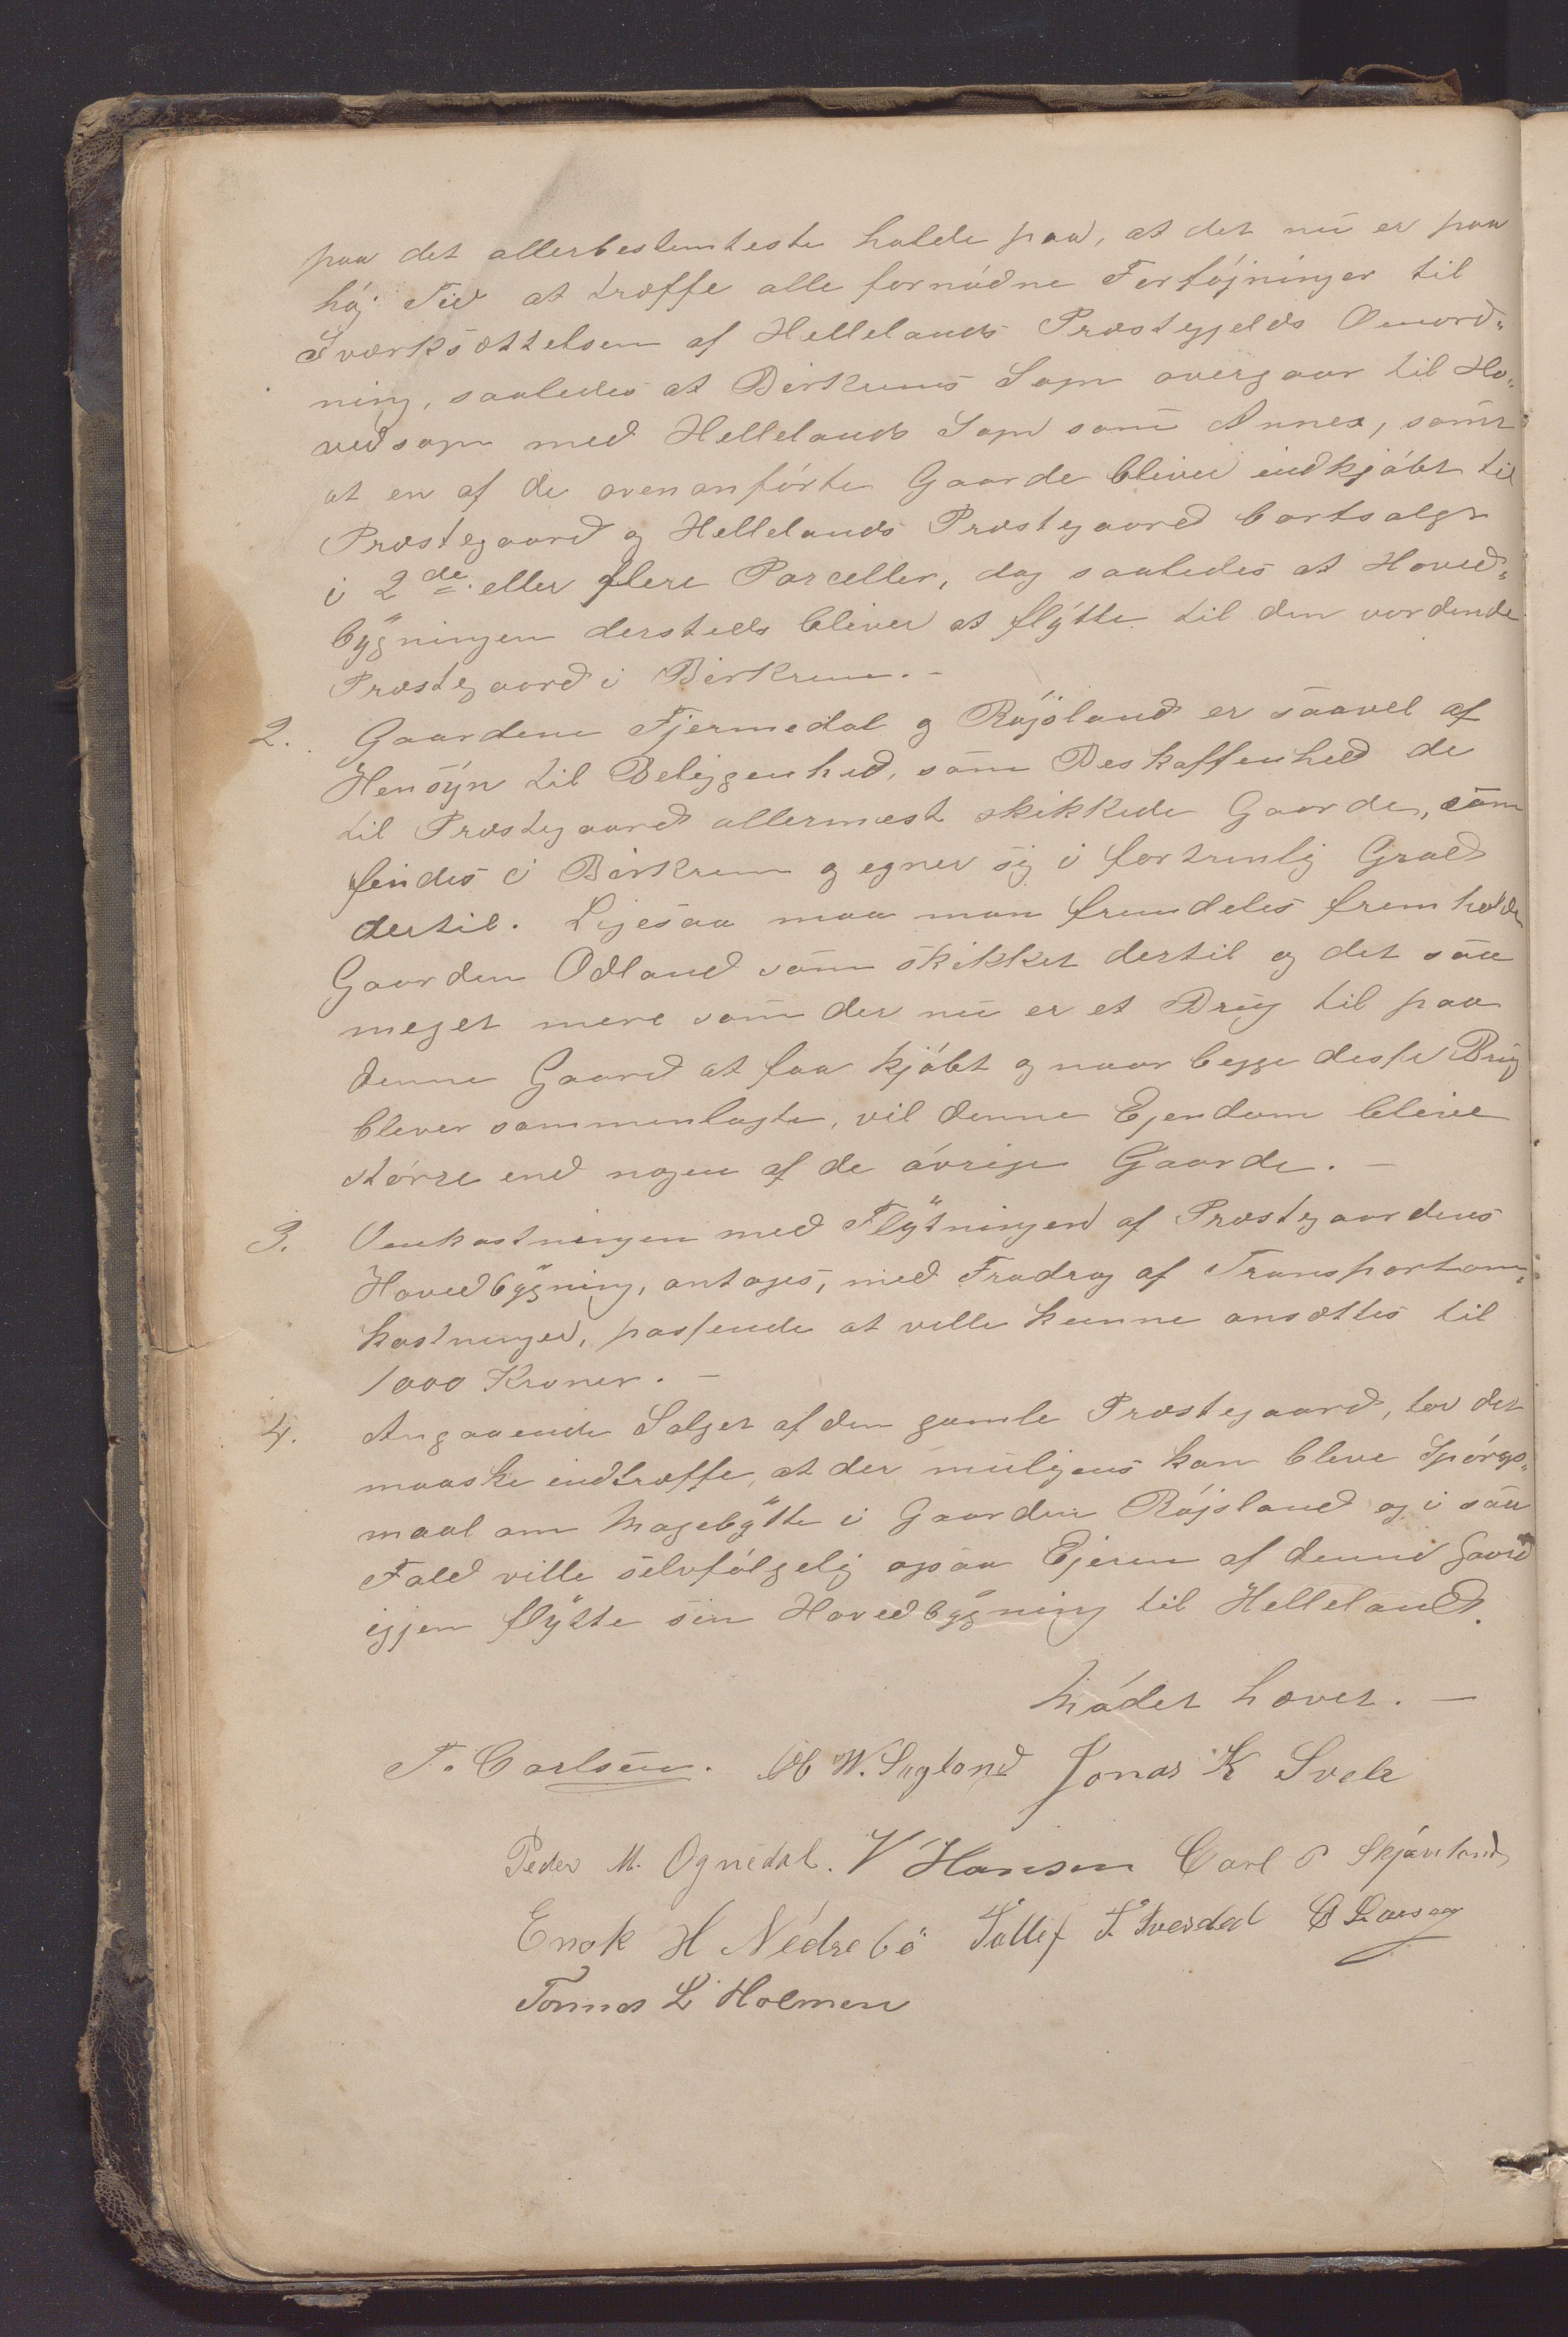 paa det allerbestemteste holde paa, at det nu er paa
høj Tid at træffe alle fornødne Forføjninger til
Iværksættelsen af Hellelands Præstegjelds Omord-
ning, saaledes at Birkrems Sogn overgaar til Ho-
vedsogn med Hellelands Sogn som Annex, samt
at en af de ovenanførte Gaarde bliver indkjøbt til
Præstegaard og Hellelands Præstegaard bortsolgt
i 2de eller flere Parceller, dog saaledes at Hoved-
bygningen dersteds bliver at flytte til den vordende
Præstegaard i Birkrem. -
2. Gaardene Fjermedal og Røjsland er saavel af
Hensyn til Beliggenhed, som Beskaffenhed de
til Præstegaard allermest skikkede Gaarde, som
findes i Birkrem og egner sig i fortrinlig Grad
dertil. Ligesaa maa man fremdeles fremholde
Gaarden Odland som skikket dertil og det saa
meget mere som der nu er et Brug til paa
denne Gaard at faa kjøbt og naar begge disse Brug
bliver sammenlagte, vil denne Ejendom blive
større end nogen af de øvrige Gaarde. -
3. Omkostningen med Flytningen af Præstegaardens
Hovedbygning, antages, med Fradrag af Transportom-
kostninger, passende at ville kunne ansættes til
1000 Kroner. -
4. Angaaende Salget af den gamle Præstegaard, tør det
maaske indtræffe, at der muligens kan blive Spørgs-
maal om Magebytte i Gaarden Røjsland og i saa
Fald ville selvfølgelig ogsaa Ejeren af denne Gaard
igjen flytte sin Hovedbygning til Helleland.
Mødet hævet. -
T. Carlsen. W. Sagland Jonas K Svele
Peder M. Ognedal. V Hansen Carl P Skjæveland
Enok H Nedrebø Tollef T. Iversdal
Tønnes L Holmen